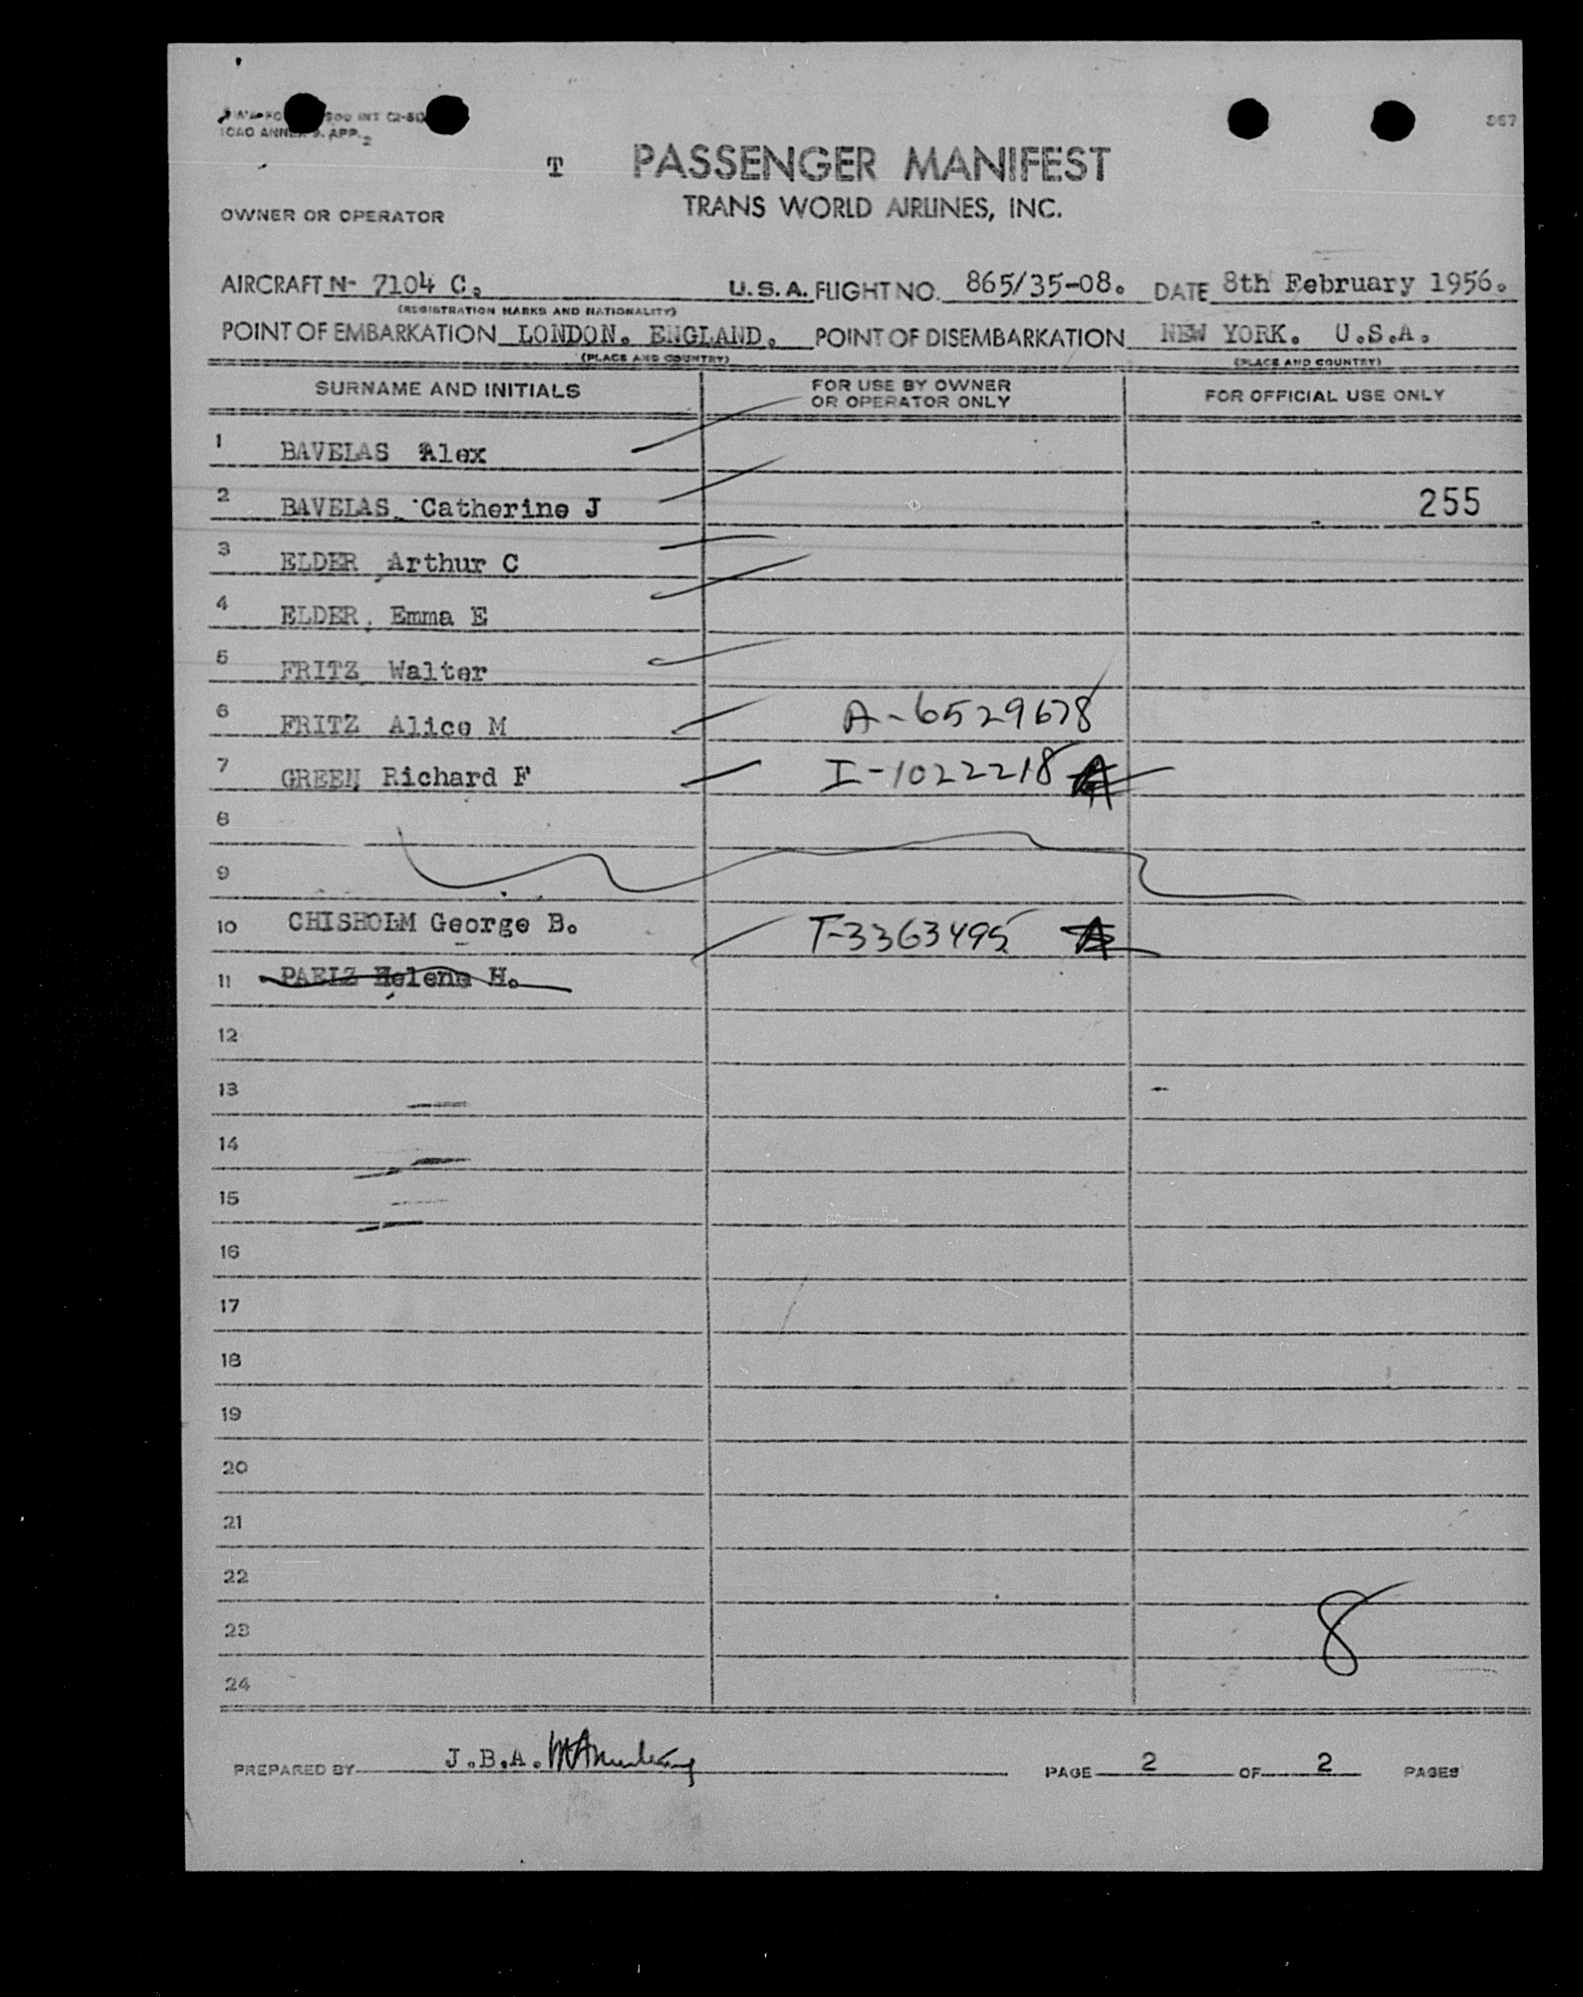 ICAO ANNEX 9. APP. 2
867
T PASSENGER MANIFEST
TRANS WORLD AIRLINES, INC.
OWNER OR OPERATOR
AIRCRAFT N- 7104 C. U.S.A. FLIGHT NO. 865/35-08. DATE 8th February 1956.
(REGISTRATION MARKS AND NATIONALITY)
POINT OF EMBARKATION LONDON. ENGLAND. POINT OF DISEMBARKATION NEW YORK. U.S.A.
(PLACE AND COUNTRY) (PLACE AND COUNTRY)
SURNAME AND INITIALS FOR USE BY OWNER OR OPERATOR ONLY FOR OFFICIAL USE ONLY
1 BAVELAS Alex
2 BAVELAS Catherine J 255
3 ELDER Arthur C
4 ELDER. Emma E
5 FRITZ Walter
6 FRITZ Alice M A-6529678
7 GREEN Richard F I-1022218
8
9
10 CHISHOLM George B. T-3363495
11 PAELZ Helene H.
12
13
14
15
16
17
18
19
20
21
22
23 8
24
PREPARED BY J.B.A. PAGE 2 OF 2 PAGES